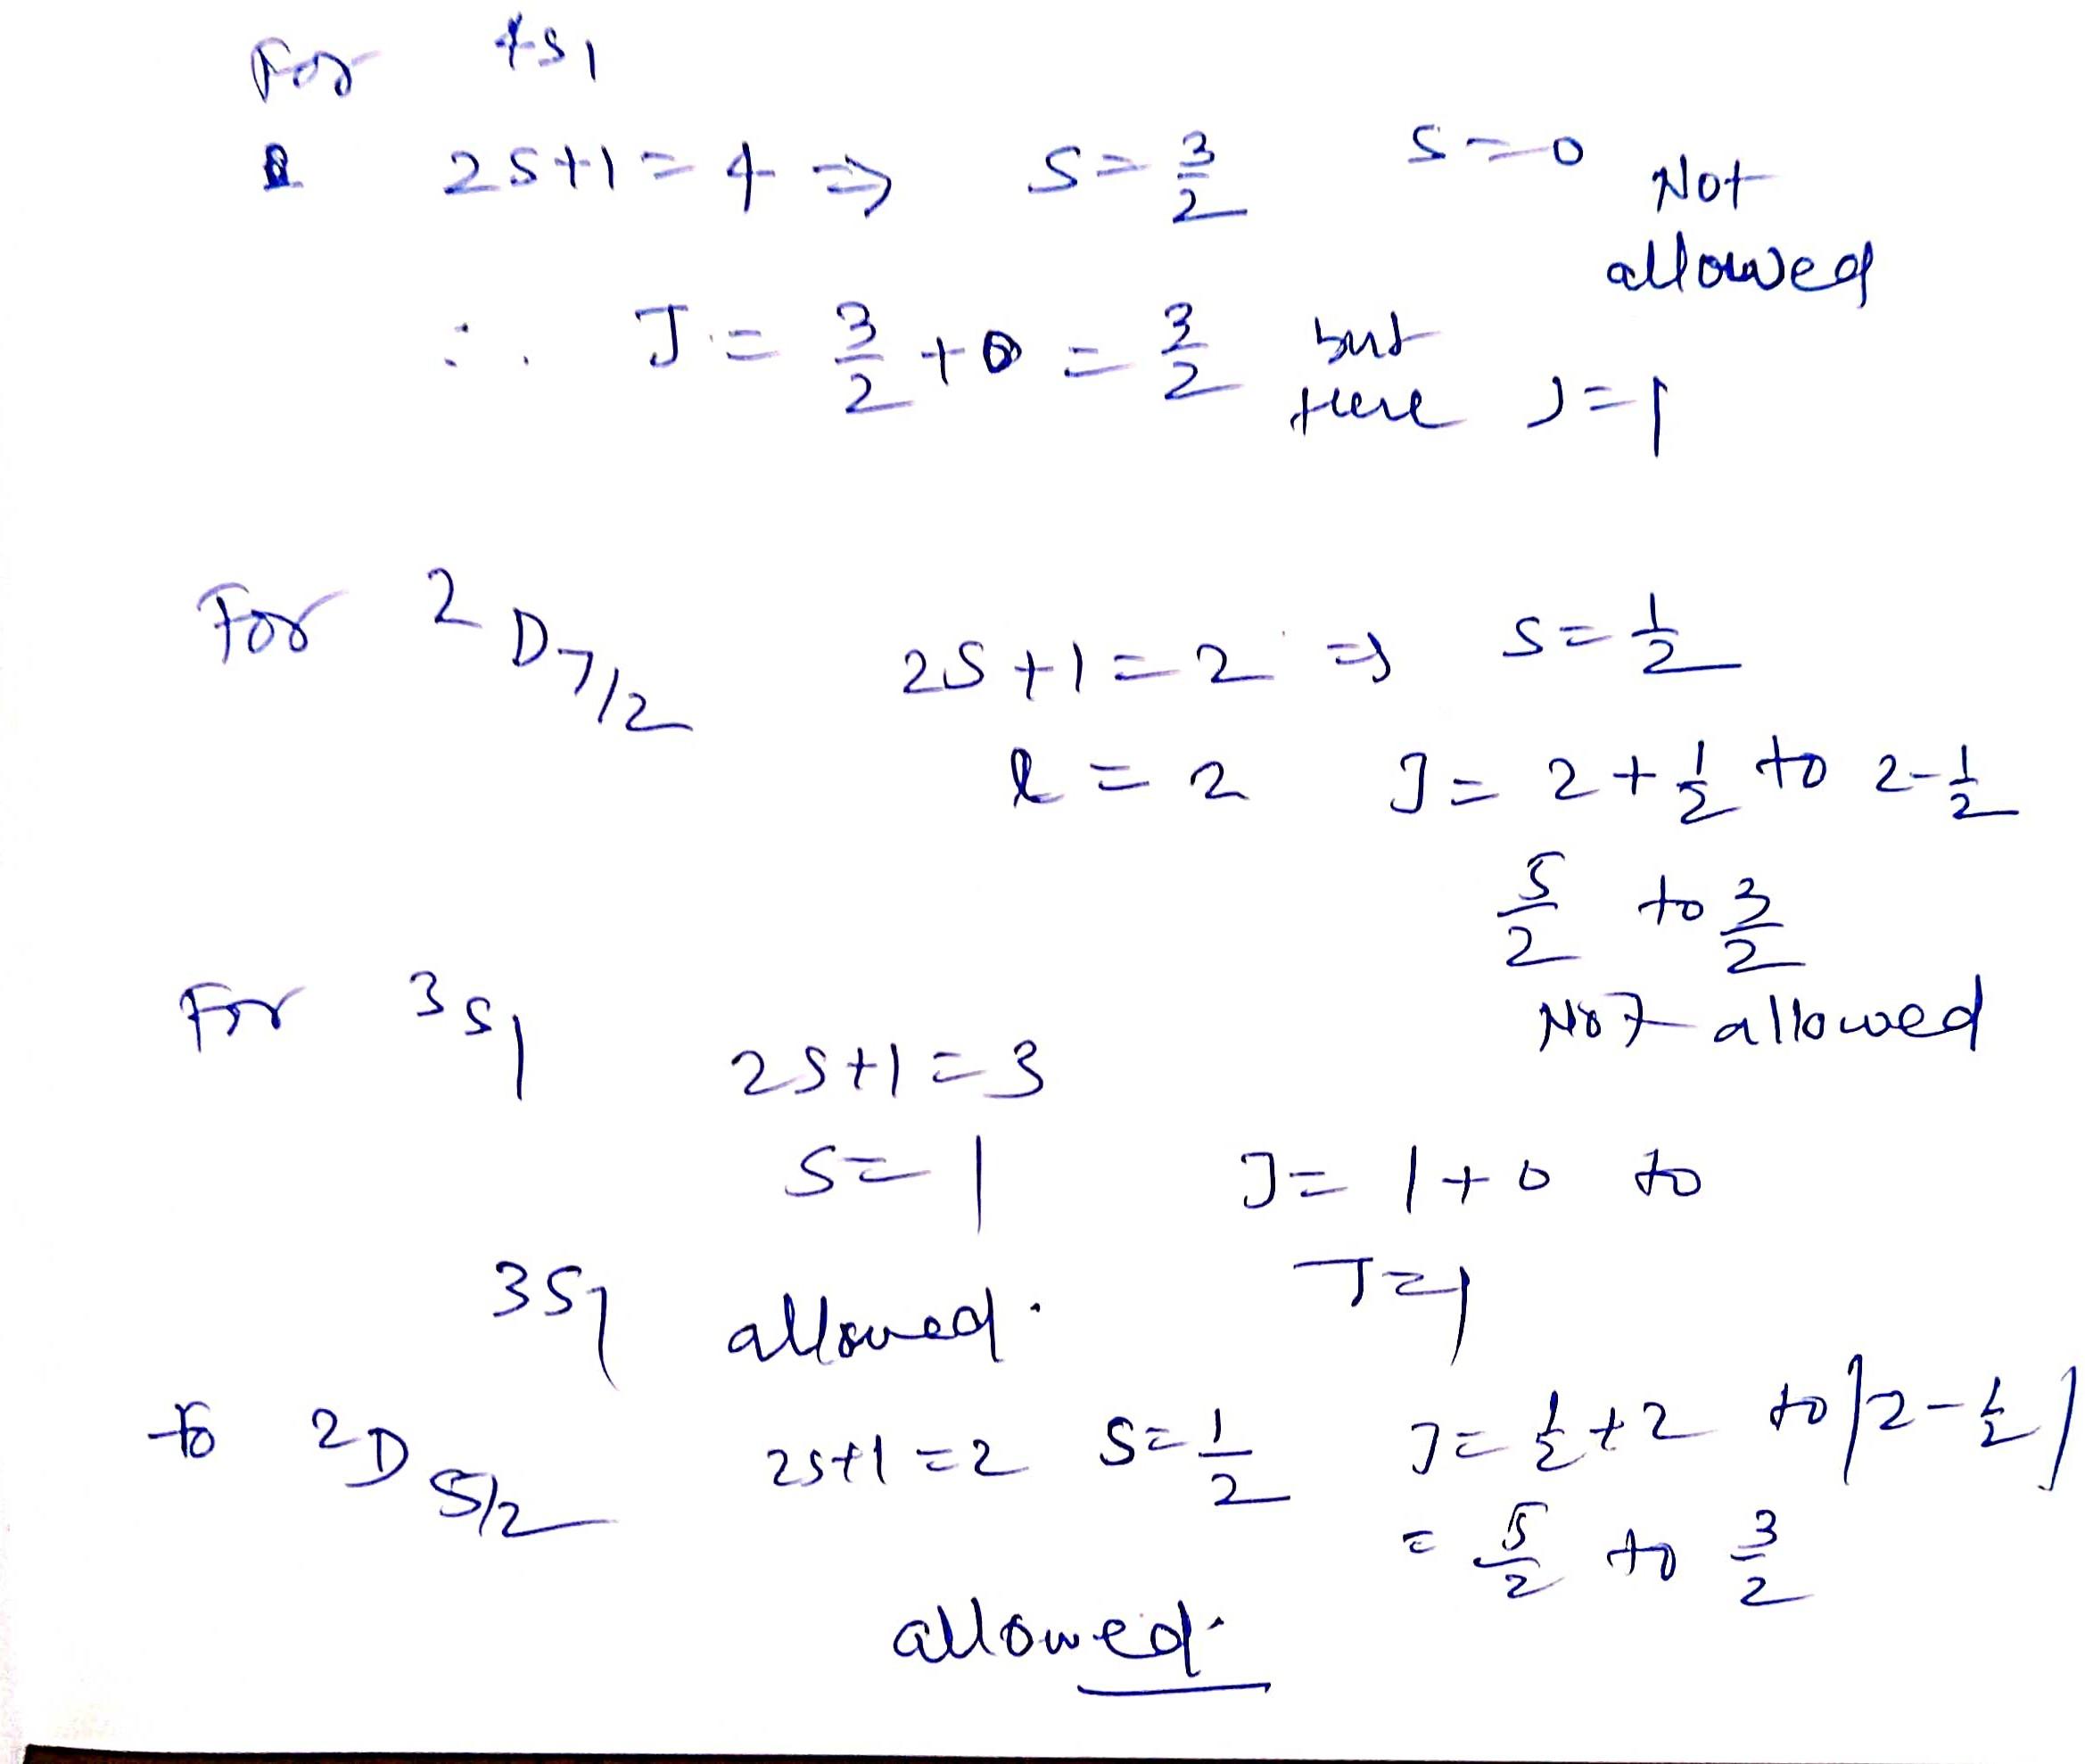 For ⁴S₁
2S+1 = 4 ⇒ S = 3/2 S=0 Not allowed
∴ J = 3/2 + 0 = 3/2 but Here J=1
For ²D₇/₂ 2S+1 = 2 ⇒ S = 1/2
l = 2 J = 2 + 1/2 to 2-1/2
5/2 to 3/2
Not allowed
For ³S₁ 2S+1 = 3
S = 1 J = 1+0 to
3S1 allowed. J=1
to ²D₅/₂ 2S+1 = 2 S = 1/2 J = 1/2 + 2 to |2-1/2|
= 5/2 to 3/2
allowed.